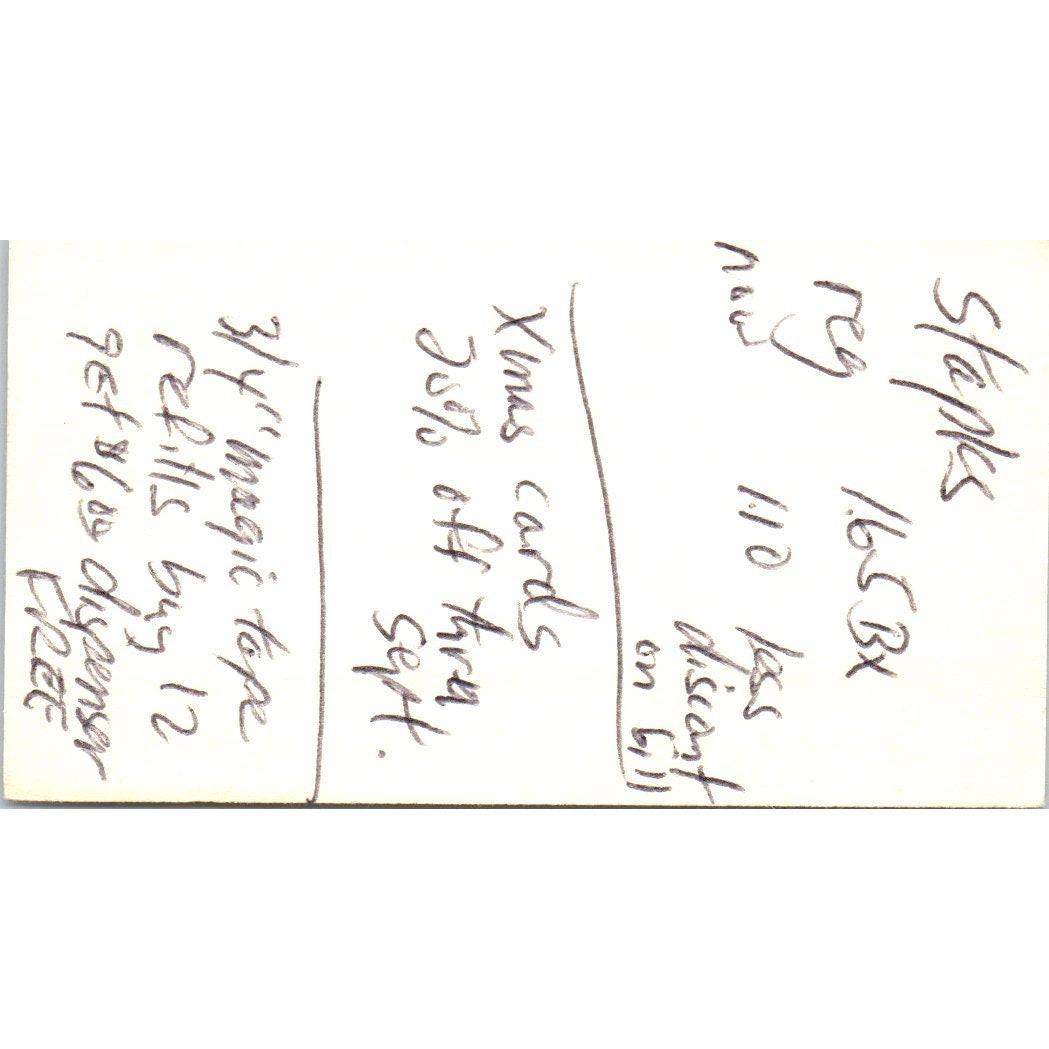 Staples
reg 1.65 Bx
now 1.10 less
discount
on bill
Xmas cards
20% off thru
Sept.
3/4" magic tape
refills buy 12
get dispenser
FREE